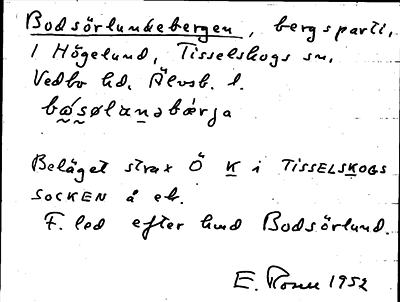 Bodsörlundebergen, bergsparti,
i Högelund, Tisselskogs sn,
Vedbo hd, Älvsb. l.
Beläget strax Ö K i TISSELSKOGS
SOCKEN å ek.
F. led efter lund Bodsörlund.
E. Rosen 1952